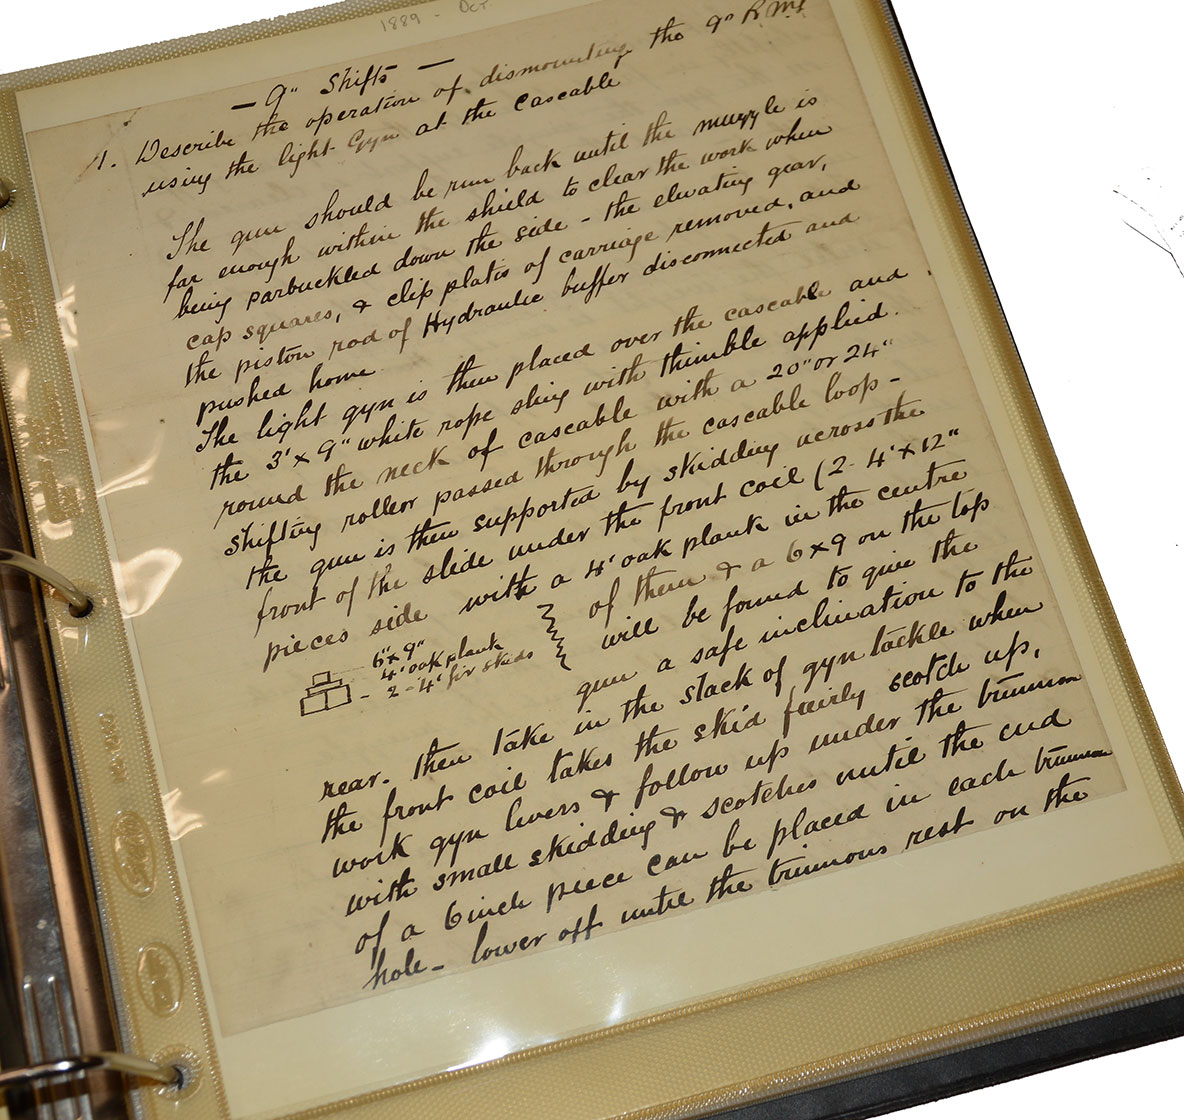 1889 - Oct.
- 9" Shifts -
1. Describe the operation of dismounting the 9" R.M.L
using the light Gyn at the Cascable
The gun should be run back until the muzzle is
far enough within the shield to clear the work when
being parbuckled down the side - the elevating gear,
cap squares, & clip plates of carriage removed, and
the piston rod of Hydraulic buffer disconnected and
pushed home
The light gyn is then placed over the cascable and
the 3' x 9" white rope sling with thimble applied.
round the neck of cascable with a 20" or 24"
shifting roller passed through the cascable loop -
the gun is then supported by skidding across the
front of the slide under the front coil (2 - 4' x 12"
pieces side with a 4' oak plank in the centre
of them & a 6 x 9 on the top
6" x 9"
4' oak plank
- 2 - 4' fir skids
will be found to give the
gun a safe inclination to the
rear. then take in the slack of gyn tackle when
the front coil takes the skid fairly scotch up,
work gyn levers & follow up under the trunnion
with small skidding & scotches until the end
of a 6 inch piece can be placed in each trunnion
hole - lower off until the trunnions rest on the